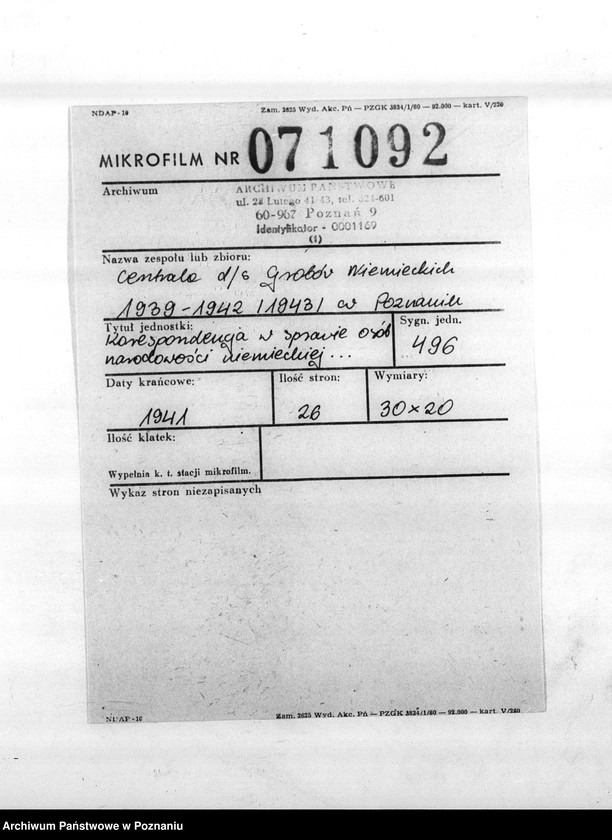 NDAP-16
Zam. 2625 Wyd. Akc. Pń — PZGK 3834/1/80 — 92.000 — kart. V/220
MIKROFILM NR 071092
Archiwum
ARCHIWUM PAŃSTWOWE
ul. 23 Lutego 41-43, tel. 524-601
60-967 Poznań 9
Identyfikator - 0001169
(1)
Nazwa zespołu lub zbioru:
Centrala d/s Grobów Niemieckich
1939-1942 /1943/ w Poznaniu
Tytuł jednostki:
Korespondencja w sprawie osób
narodowości niemieckiej...
Sygn. jedn.
496
Daty krańcowe:
1941
Ilość stron:
26
Wymiary:
30×20
Ilość klatek:
Wypełnia k. t. stacji mikrofilm.
Wykaz stron niezapisanych
NDAP-16
Zam. 2625 Wyd. Akc. Pń — PZGK 3834/1/80 — 92.000 — kart. V/220
Archiwum Państwowe w Poznaniu